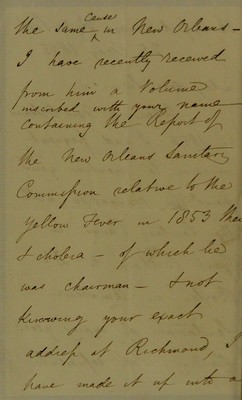 the same cause in New Orleans -
I have recently received
from him a Volume
inscribed with your name
containing the Report of
the New Orleans Sanitary
Commission relative to the
Yellow Fever in 1853
& cholera - of which he
was chairman - & not
knowing your exact
address at Richmond, I
have made it up into a